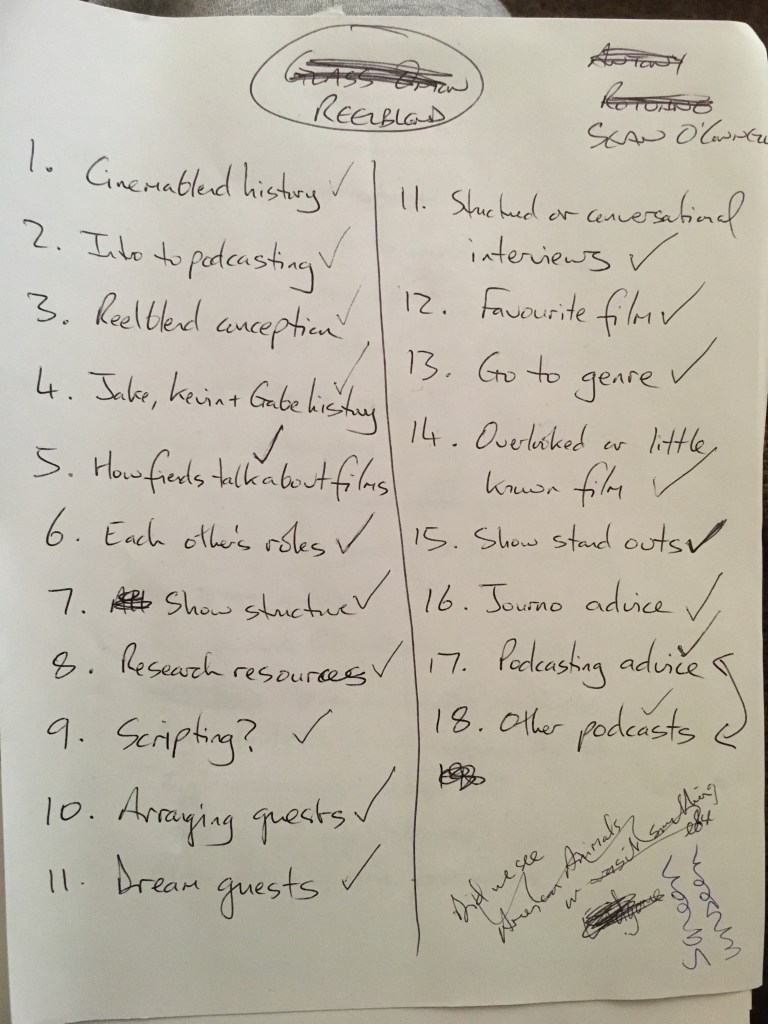 GLASS ONION
REELBLEND
ANTONY
ROTUNNO
SEAN O'CONNELL
1. Cinemablend history ✓
2. Intro to podcasting ✓
3. Reelblend conception ✓
4. Jake, Kevin + Gabe history ✓
5. How friends talk about films ✓
6. Each other's rôles ✓
7. Show structure ✓
8. Research resources ✓
9. Scripting? ✓
10. Arranging guests ✓
11. Dream guests ✓
11. Structured or conversational
interviews ✓
12. Favourite film ✓
13. Go to genre ✓
14. Overlooked or little
known film ✓
15. Show stand outs ✓
16. Journo advice ✓
17. Podcasting advice ✓
18. Other podcasts ✓
Did we see
American Animals
or was it something
else